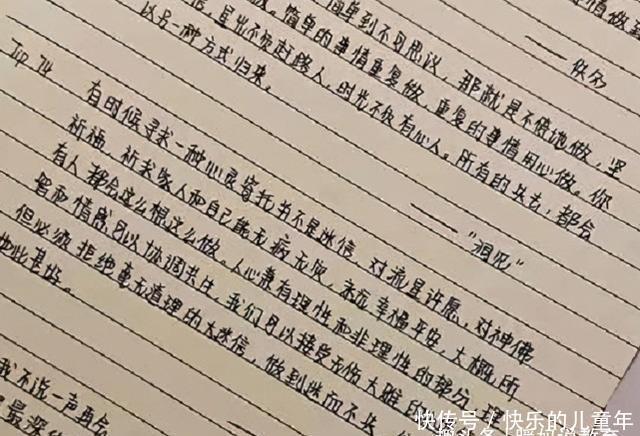 简单到不可思议，那就是不借地做，坚
简单的事情重复做，重复的事情用心做。你
星光不负赶路人，时光不负有心人。所有的失去，都会
以另一种方式归来。
——佚名
——“洞见”
Tip 74
有时候寻求一种心灵寄托并不是迷信，对流星许愿，对神佛
祈福，祈求家人和自己能无病无灾，永远幸福平安，大概所
有人都会这么想这么做。人心兼有理性和非理性的部分，
智和情感可以协调共生，我们可以接受无伤大雅的
但必须拒绝毫无道理的大迷信，做到迷而不失
如此甚好。
我不说一声再会
快传号／快乐的儿童年